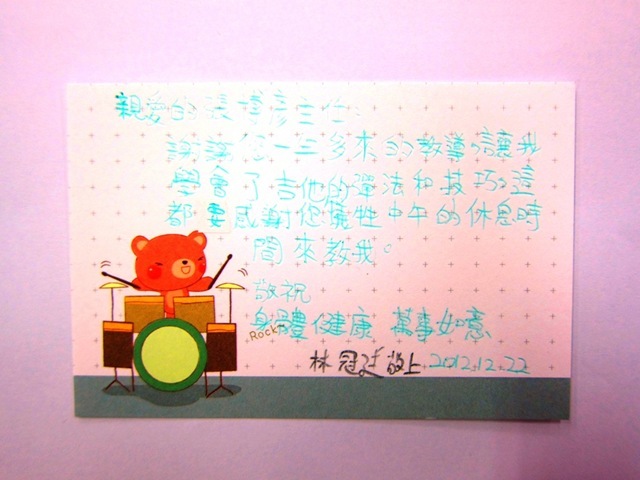 親愛的張博彥主任：
謝謝您一年多來的教導，讓我
學會了吉他的彈法和技巧，這
都要感謝您犧牲中午的休息時
間來教我。
敬祝
身體健康 萬事如意
Rock~
林冠廷敬上 2012.12.22